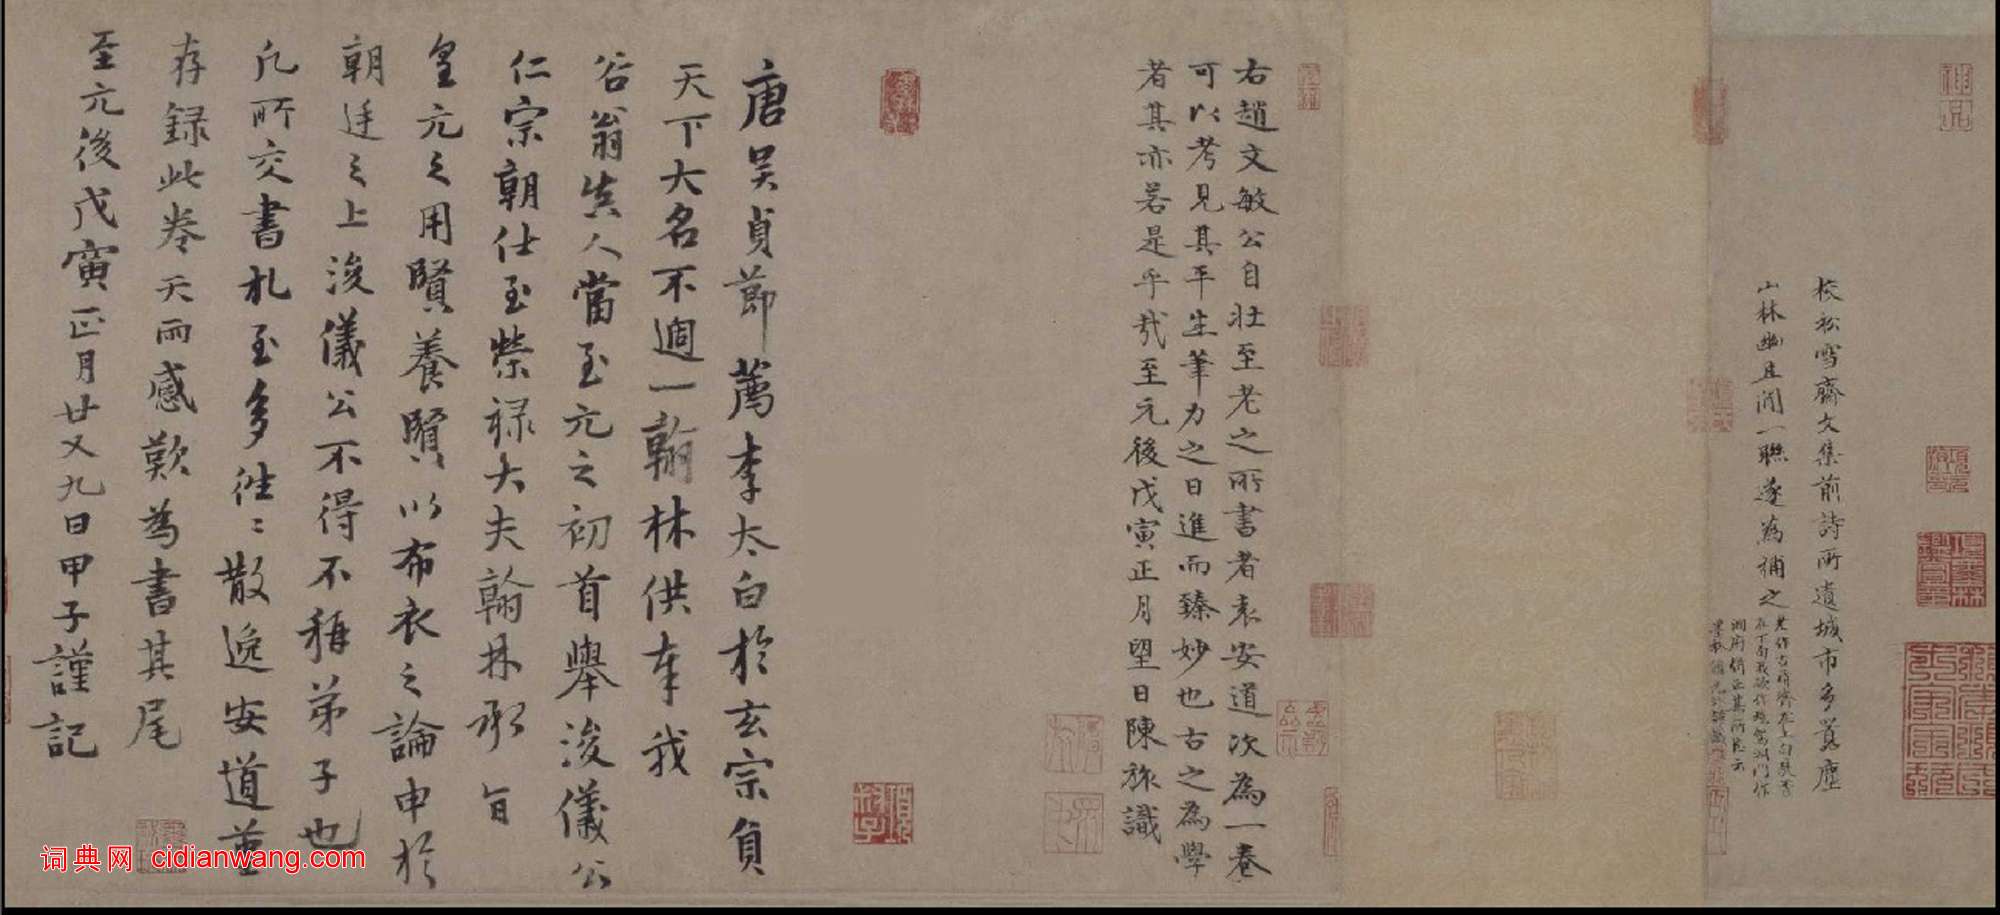 校松雪齋文集前詩所遺城市多囂塵
山林幽且閒一聯遂為補之
右趙文敏公自壯至老之所書者袁安道次為一卷
可以考見其平生筆力之日進而臻妙也古之為學
者其亦若是乎哉至元後戊寅正月望日陳旅識
唐吳貞節薦李太白於玄宗負
天下大名不過一翰林供奉我
谷翁真人當至元之初首舉浚儀公
仁宗朝仕至榮祿大夫翰林承旨
皇元之用賢養賢以布衣之論申於
朝廷之上浚儀公不得不稱弟子也
凡所交書札至多往〻散逸安道並
存錄此卷天雨感歎為書其尾
至元後戊寅正月廿又九日甲子謹記
词典网 cidianwang.com